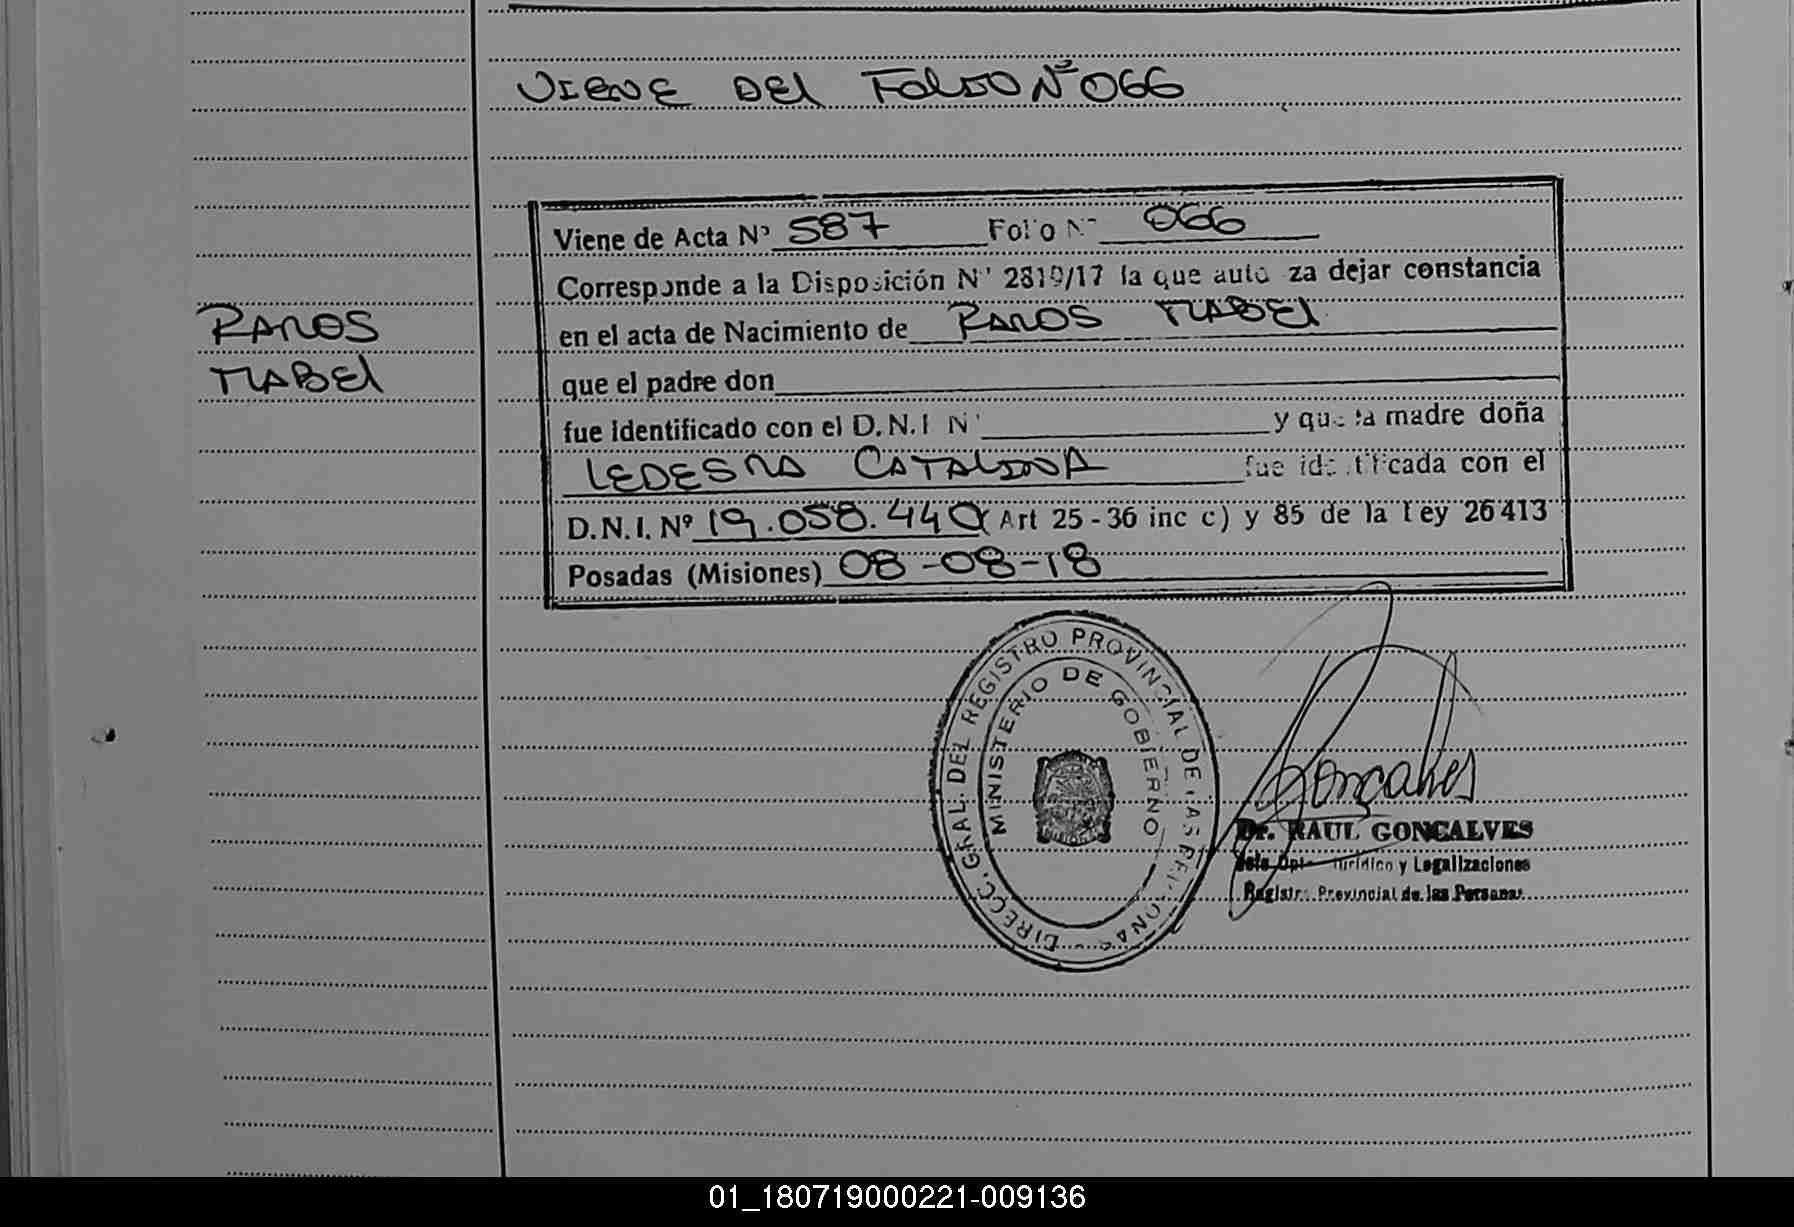 VIENE DEL FOLIO Nº 066
Viene de Acta Nº 587 Folio Nº 066
Corresponde a la Disposición Nº 2819/17 la que autoriza dejar constancia
en el acta de Nacimiento de RAMOS MABEL
RAMOS
MABEL
que el padre don
fue identificado con el D.N.I Nº y que la madre doña
LEDESMA CATALINA fue identificada con el
D.N.I. Nº 19.058.440 (Art 25-36 inc c) y 85 de la Ley 26413
Posadas (Misiones) 08-08-18
DIRECC. GRAL. DEL REGISTRO PROVINCIAL DE LAS PERSONAS
MINISTERIO DE GOBIERNO
Goncalves
Dr. RAUL GONCALVES
Jefe Dpto Jurídico y Legalizaciones
Registro Provincial de las Personas
01_180719000221-009136